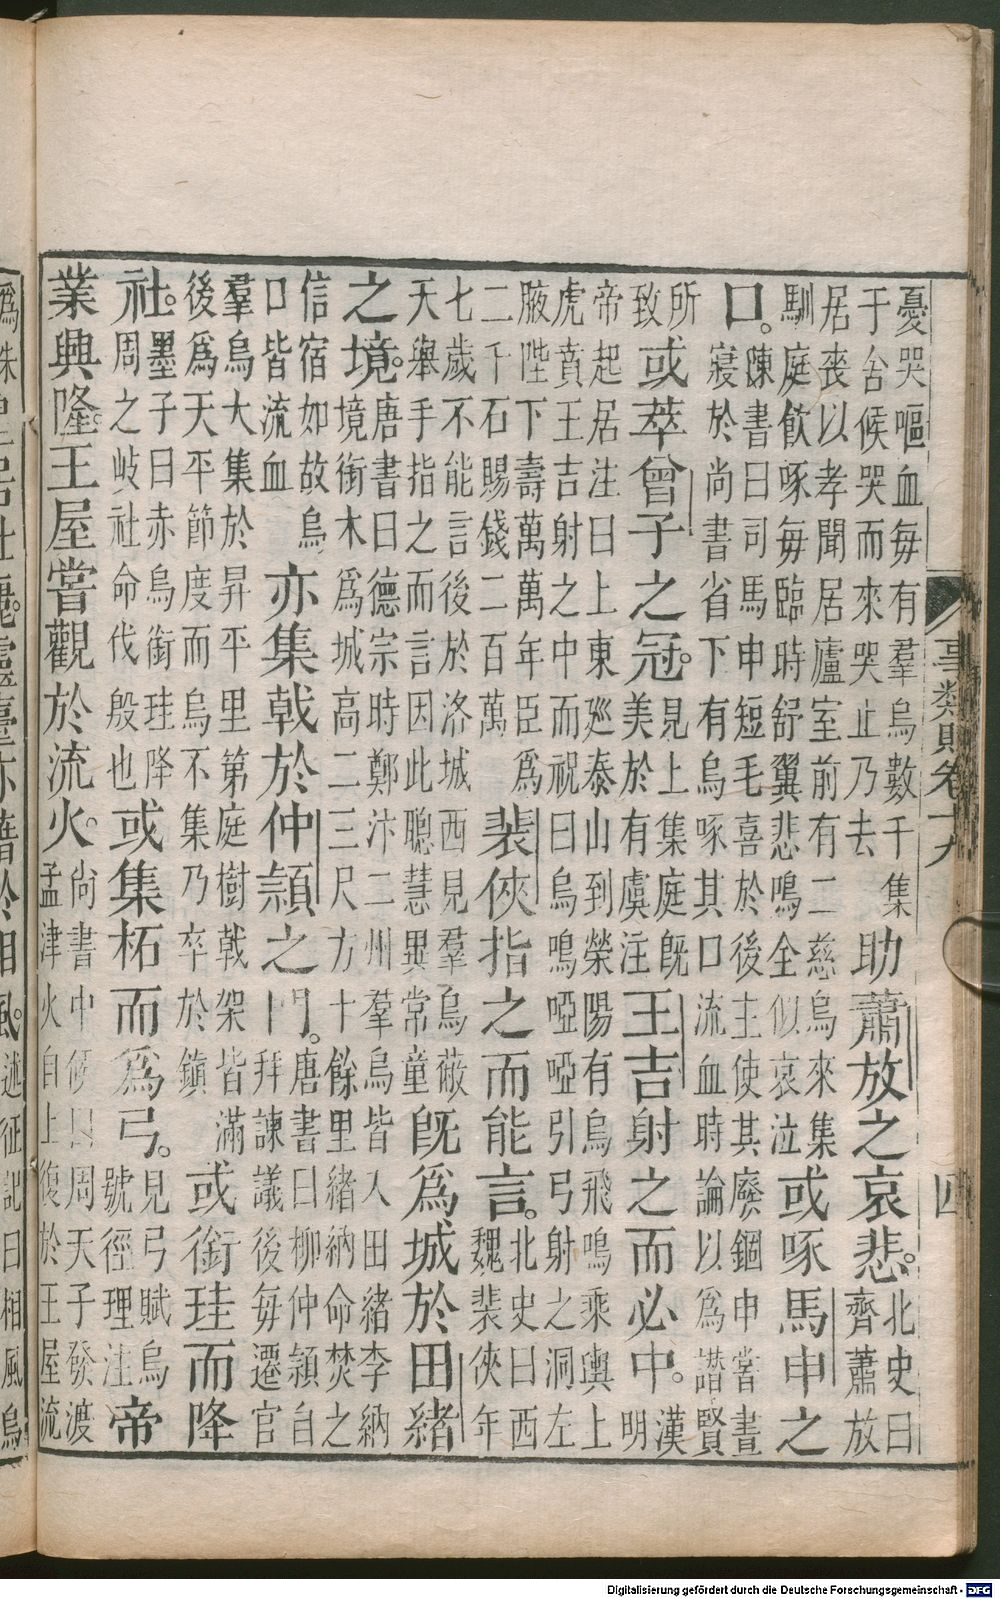 事類賦卷十九
四
憂哭嘔血毎有羣烏數千集
于舍候哭而來哭止乃去
助蕭放之哀悲。
北史曰
齊蕭放
居喪以孝聞居廬室前有二慈烏來集
馴庭飲啄毎臨時舒翼悲鳴全似哀泣
或啄馬申之
口。
陳書曰司馬申短毛喜於後主使其廢錮申嘗晝
寢於尚書省下有烏啄其口流血時論以爲譖賢
所
致
或萃曾子之冠。
見上集庭旣
美於有虞注
王吉射之而必中。
漢
明
帝起居注曰上東廵泰山到榮陽有烏飛鳴乘輿上
虎賁王吉射之中而祝曰烏鳴啞啞引弓射之洞左
腋陛下壽萬萬年臣爲
二千石賜錢二百萬
裴俠指之而能言。
北史曰西
魏裴俠年
七歲不能言後於洛城西見羣烏蔽
天舉手指之而言因此聰慧異常童
旣爲城於田緒
之境。
唐書曰德宗時鄭汴二州羣烏皆入田緒李納
境銜木爲城高二三尺方十餘里緒納命焚之
信宿如故烏
口皆流血
亦集戟於仲頴之門。
唐書曰柳仲頴自
拜諫議後毎遷官
羣烏大集於昇平里第庭樹戟架皆滿
後爲天平節度而烏不集乃卒於鎮
或銜珪而降
社。
墨子曰赤烏銜珪降
周之岐社命伐殷也
或集柘而爲弓。
見弓賦烏
號徑理注
帝
業興隆。王屋嘗觀於流火。
尚書中候曰周天子發渡
孟津火自上復於王屋流
於相風。
述征記曰相風烏
Digitalisierung gefördert durch die Deutsche Forschungsgemeinschaft - DFG